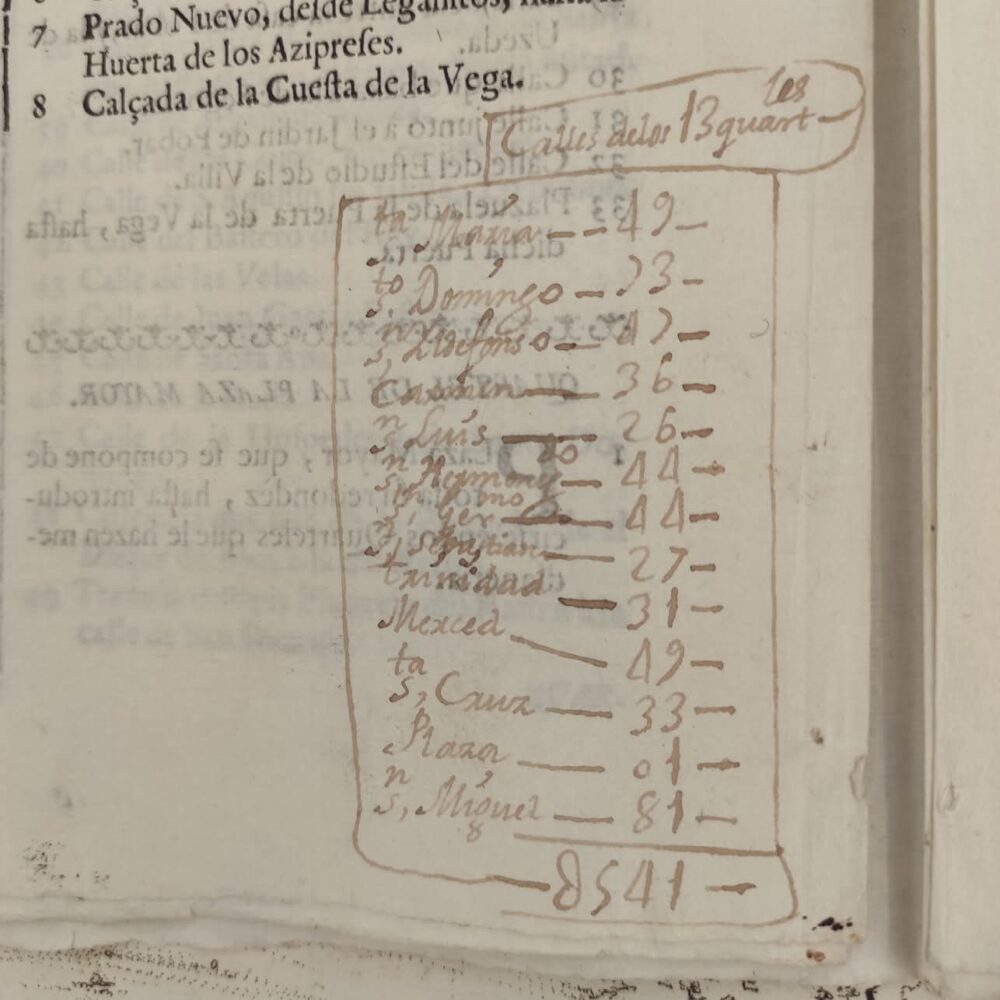 7 Prado Nuevo, deſde Leganitos, haſta la
Huerta de los Azipreſes.
8 Calçada de la Cueſta de la Vega.
Calles delos 13 quartles
s,ta Maria — 49 —
s,to Domingo — 73 —
s,n Ildefonso — 47 —
Carmen — 36 —
s,n Luis — 26 —
44 —
s,n Germo — 44 —
s,n Sebastian — 27 —
trinidad — 31 —
Merced — 49 —
s,ta Cruz — 33 —
Plaza — 01 —
s,n Miguel — 81 —
— 8541 —